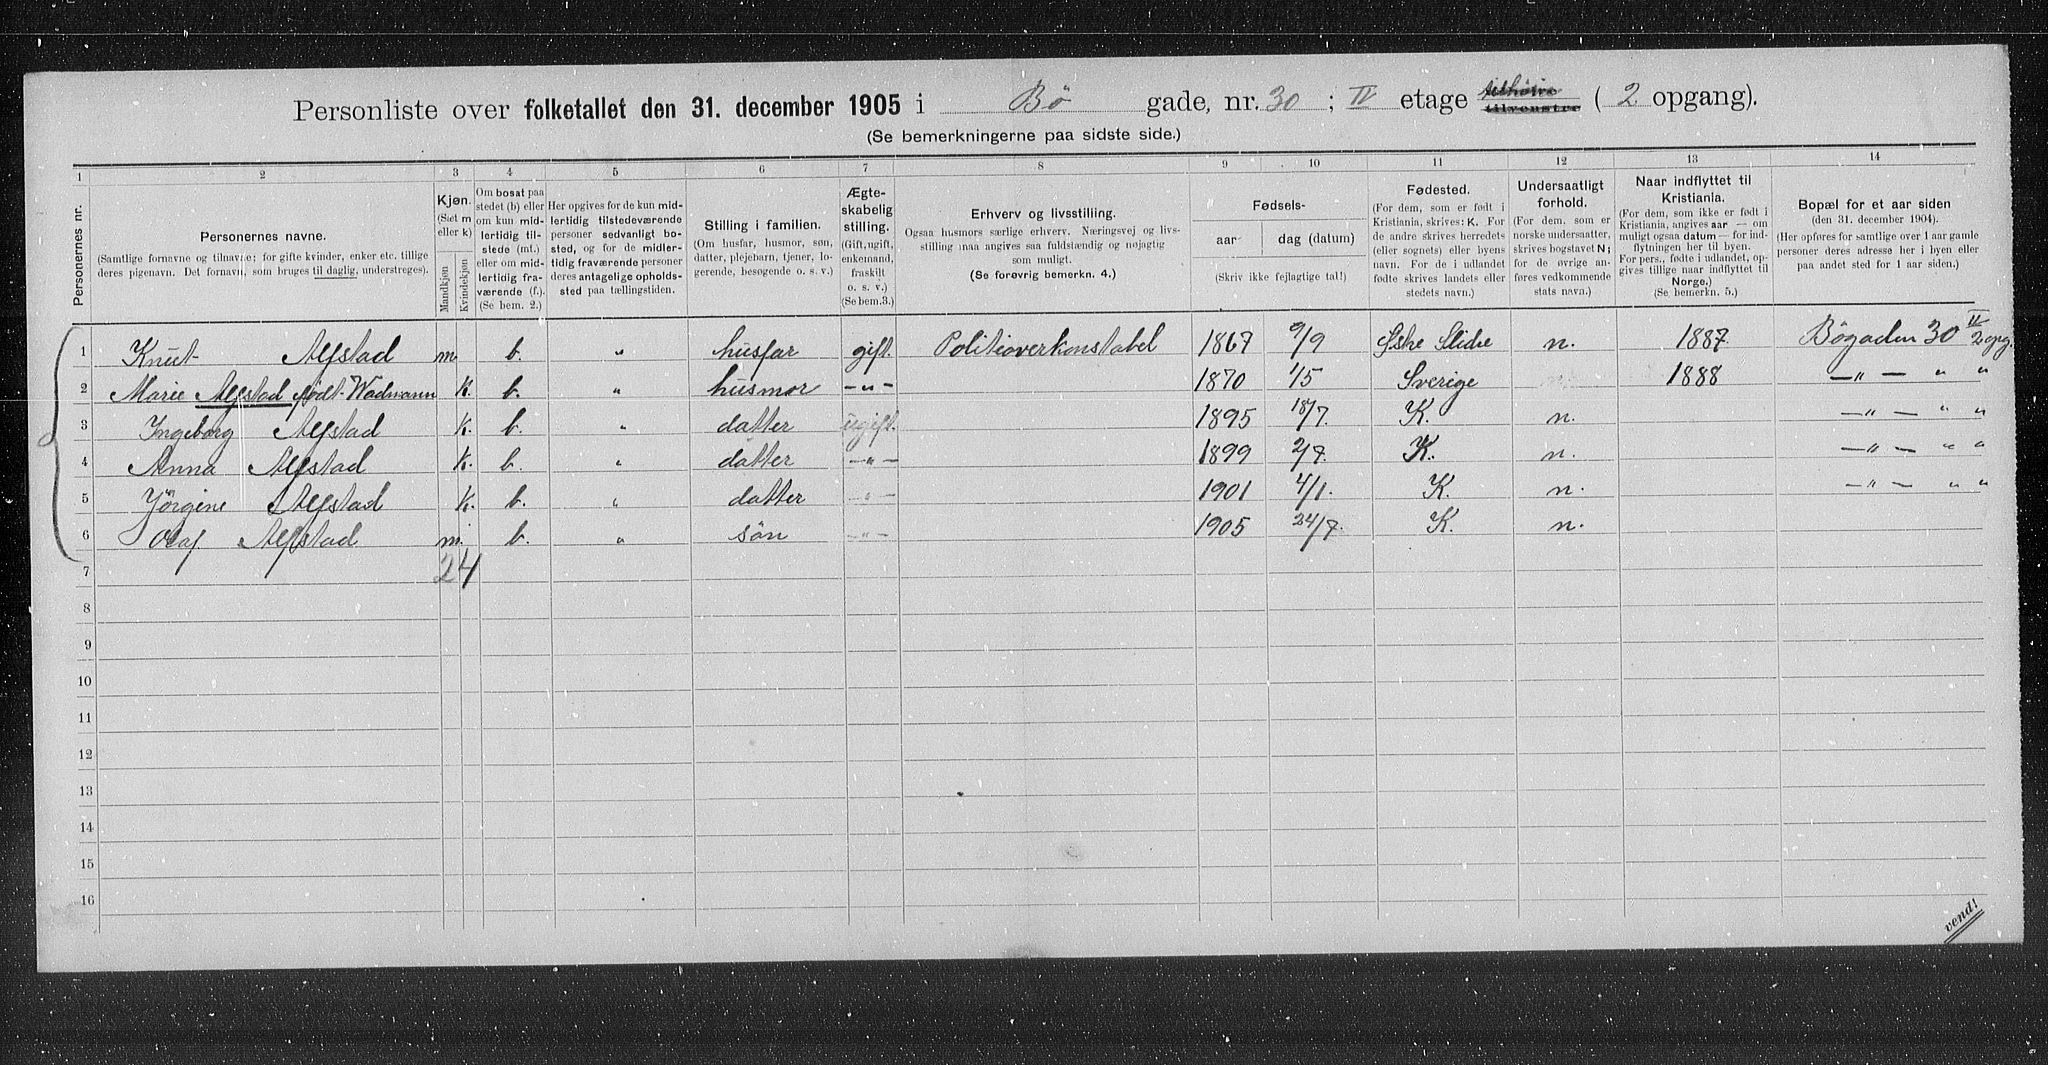 Personliste over folketallet den 31. december 1905 i Bø gade, nr. 30 ; II etage tilhøire tilvenstre ( 2 opgang).
(Se bemerkningerne paa sidste side.)
1 2 3 4 5 6 7 8 9 10 11 12 13 14
Personernes nr.
Personernes navne.
(Samtlige fornavne og tilnavne; for gifte kvinder, enker etc. tillige
deres pigenavn. Det fornavn, som bruges til daglig, understreges).
Kjøn.
(Sæt m
eller k)
Mandkjøn
Kvindekjøn
Om bosat paa
stedet (b) eller
om kun mid-
lertidig til-
stede (mt.)
eller om mid-
lertidig fra-
værende (f.).
(Se bem. 2.)
Her opgives for de kun mid-
lertidig tilstedeværende
personer sedvanligt bo-
sted, og for de midler-
tidig fraværende personer
deres antagelige opholds-
sted paa tællingstiden.
Stilling i familien.
(Om husfar, husmor, søn,
datter, plejebarn, tjener, lo-
gerende, besøgende o. s. v.)
Ægte-
skabelig
stilling.
(Gift, ugift,
enkemand,
fraskilt
o. s. v.)
(Se bem. 3.)
Erhverv og livsstilling.
Ogsaa husmors særlige erhverv. Næringsvej og livs-
stilling maa angives saa fuldstændig og nøjagtig
som muligt.
(Se forøvrig bemerkn. 4.)
Fødsels-
aar
dag (datum)
(Skriv ikke fejlagtige tal!)
Fødested.
(For dem, som er født i
Kristiania, skrives: K. For
de andre skrives herredets
(eller sognets) eller byens
navn. For de i udlandet
fødte skrives landets eller
stedets navn.)
Undersaatligt
forhold.
(For dem, som er
norske undersatter,
skrives bogstavet N;
for de øvrige an-
føres vedkommende
stats navn.)
Naar indflyttet til
Kristiania.
(For dem, som ikke er født i
Kristiania, angives aar — om
muligt ogsaa datum — for ind-
flytningen her til byen.
For pers., fødte i udlandet, op-
gives tillige naar indflyttet til
Norge.)
(Se bemerkn. 5.)
Bopæl for et aar siden
(den 31. december 1904).
(Her opføres for samtlige over 1 aar gamle
personer deres adresse her i byen eller
paa andet sted for 1 aar siden.)
1 Knut Alfstad m b. " husfar gift. Politioverkonstabel 1867 9/9 Slidre n. 1887 Bøgaden 30 II 2 opg.
2 Marie Alfstad født Wadmann k. b. " husmor —"— 1870 1/5 Sverige 1888 —"— " "
3 Ingeborg Alfstad k. b. " datter ugift. 1895 18/7. K. n. —"— " "
4 Anna Alfstad k. b. " datter —"— 1899 2/7. K. n. —"— " "
5 Jørgine Alfstad k. b. " datter —"— 1901 4/1. K. n. —"— " "
6 Olaf Alfstad m. b. " søn —"— 1905 24/7. K. n.
7 2 4
8
9
10
11
12
13
14
15
16
vend!